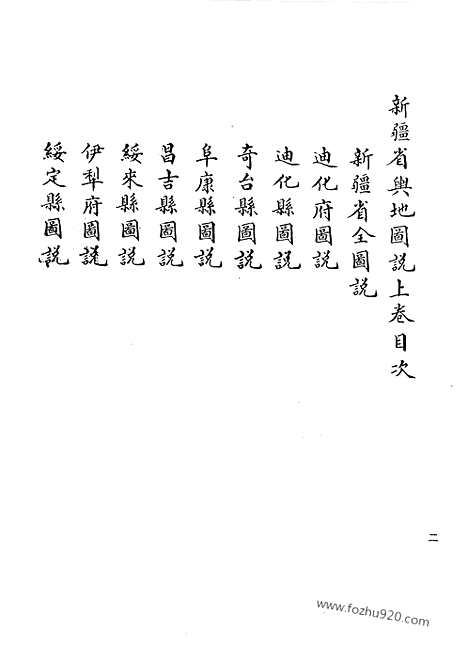 新疆省輿地圖説上卷目次
新疆省全圖説
迪化府圖説
迪化縣圖説
奇台縣圖説
阜康縣圖説
昌吉縣圖説
綏來縣圖説
伊犁府圖説
綏定縣圖説
二
www.fozhu920.com